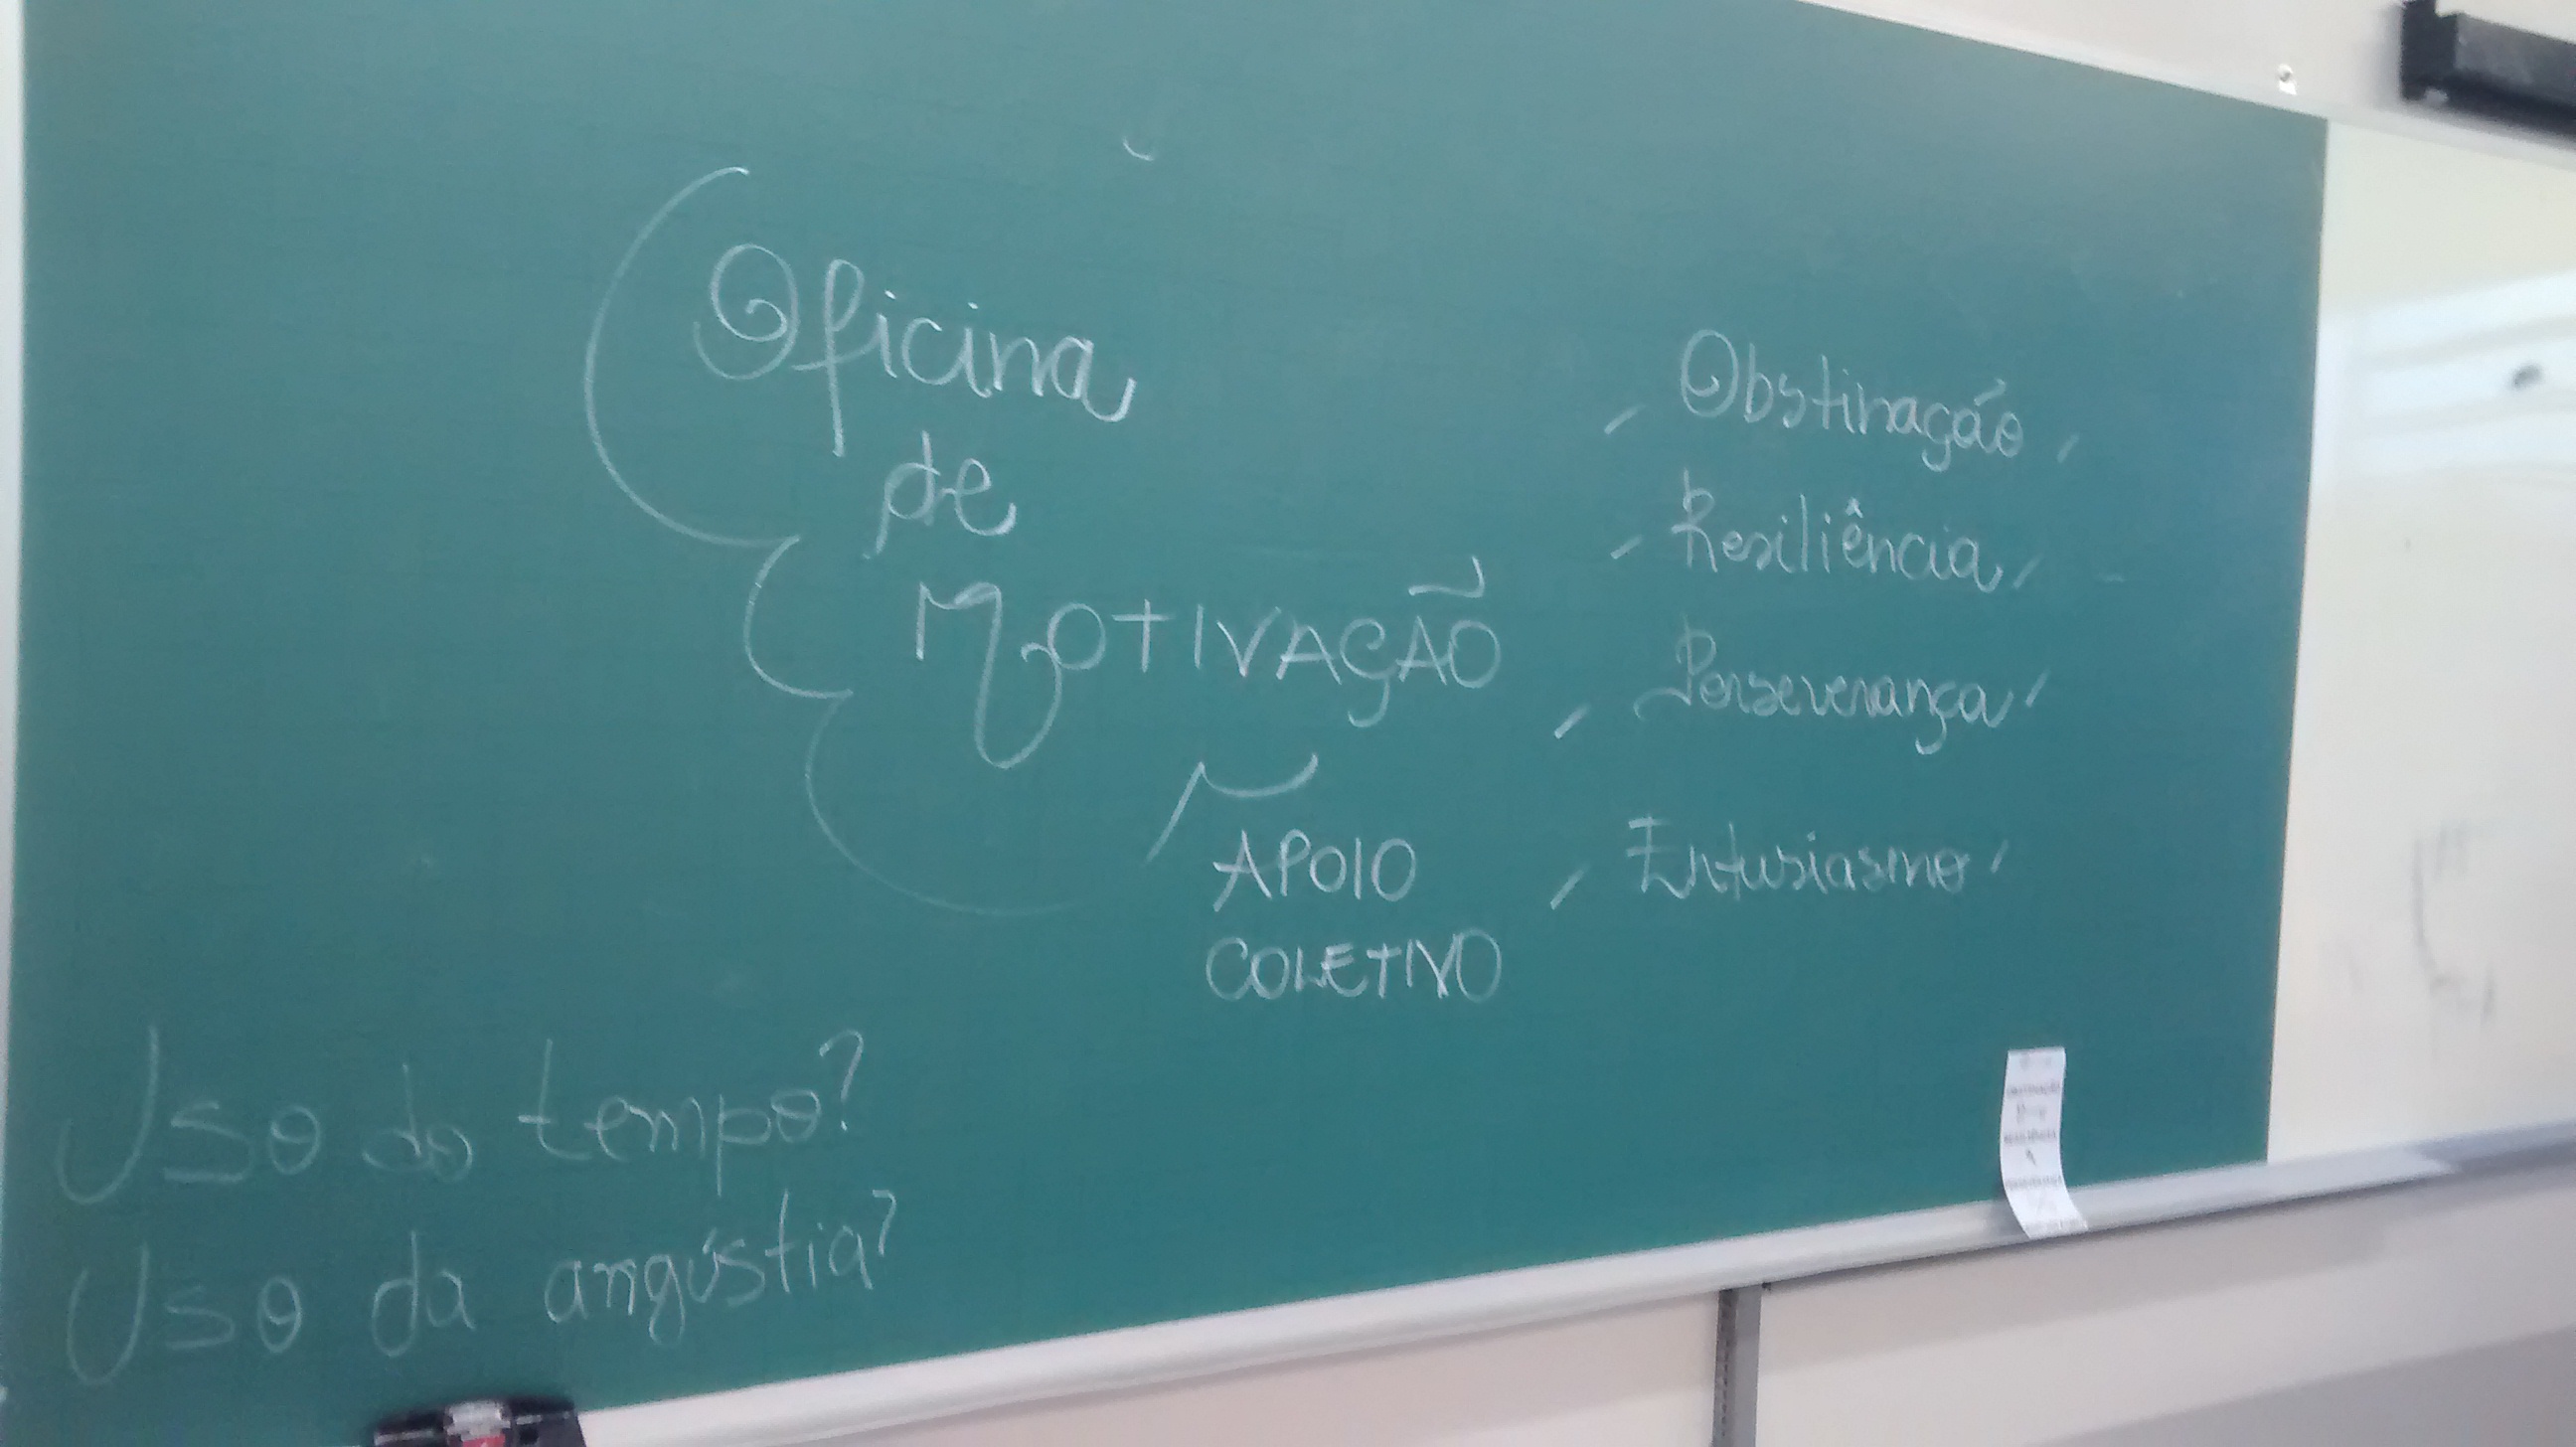 Oficina
de
MOTIVAÇÃO
APOIO
COLETIVO
Obstinação
Resiliência
Perseverança
Entusiasmo
Uso do tempo?
Uso da angústia?